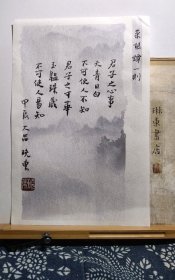 菜根譚一則
君子之心事
天青日白
不可使人不知
君子之才華
玉韞珠藏
不可使人易知
甲辰 大吕
東書店